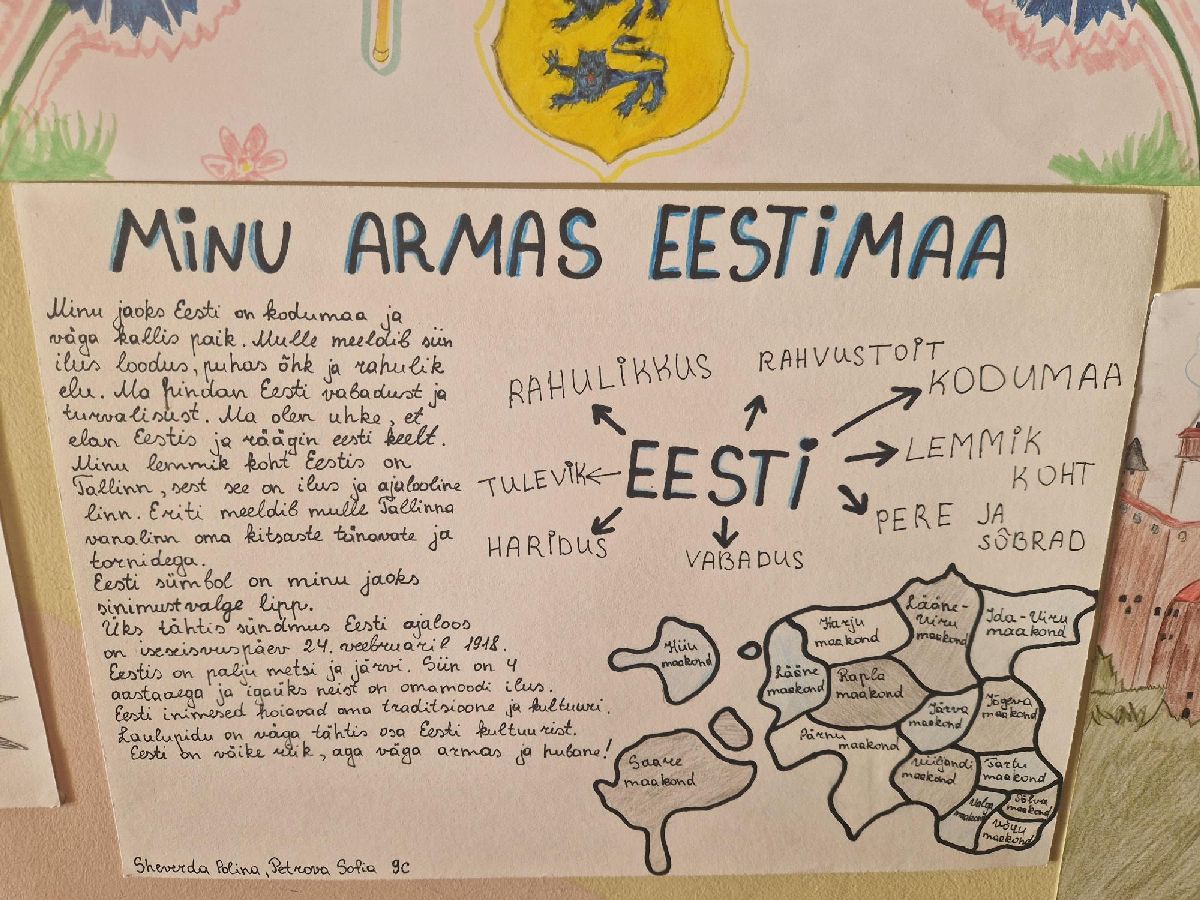 MINU ARMAS EESTIMAA
Minu jaoks Eesti on kodumaa ja
väga kallis paik. Mulle meeldib siin
ilus loodus, puhas õhk ja rahulik
elu. Ma hindan Eesti vabadust ja
turvalisust. Ma olen uhke, et
elan Eestis ja räägin eesti keelt.
Minu lemmik koht Eestis on
Tallinn, sest see on ilus ja ajalooline
linn. Eriti meeldib mulle Tallinna
vanalinn oma kitsaste tänavate ja
tornidega.
Eesti sümbol on minu jaoks
sinimustvalge lipp.
Üks tähtis sündmus Eesti ajaloos
on iseseisvuspäev 24. veebruaril 1918.
Eestis on palju metsi ja järvi. Siin on 4
aastaaega ja igaüks neist on omamoodi ilus.
Eesti inimesed hoiavad oma traditsioone ja kultuuri.
Laulupidu on väga tähtis osa Eesti kultuurist.
Eesti on väike riik, aga väga armas ja hubane!
Sheverda Polina, Petrova Sofia 9C
RAHULIKKUS
RAHVUSTOIT
KODUMAA
EESTI
LEMMIK
KOHT
TULEVIK
PERE JA
SÕBRAD
HARIDUS
VABADUS
Hiiu
maakond
Harju
maakond
Lääne-
Viru
maakond
Ida-Viru
maakond
Lääne
maakond
Rapla
maakond
Järva
maakond
Jõgeva
maakond
Pärnu
maakond
Viljandi
maakond
Tartu
maakond
Saare
maakond
Valga
maakond
Põlva
maakond
Võru
maakond